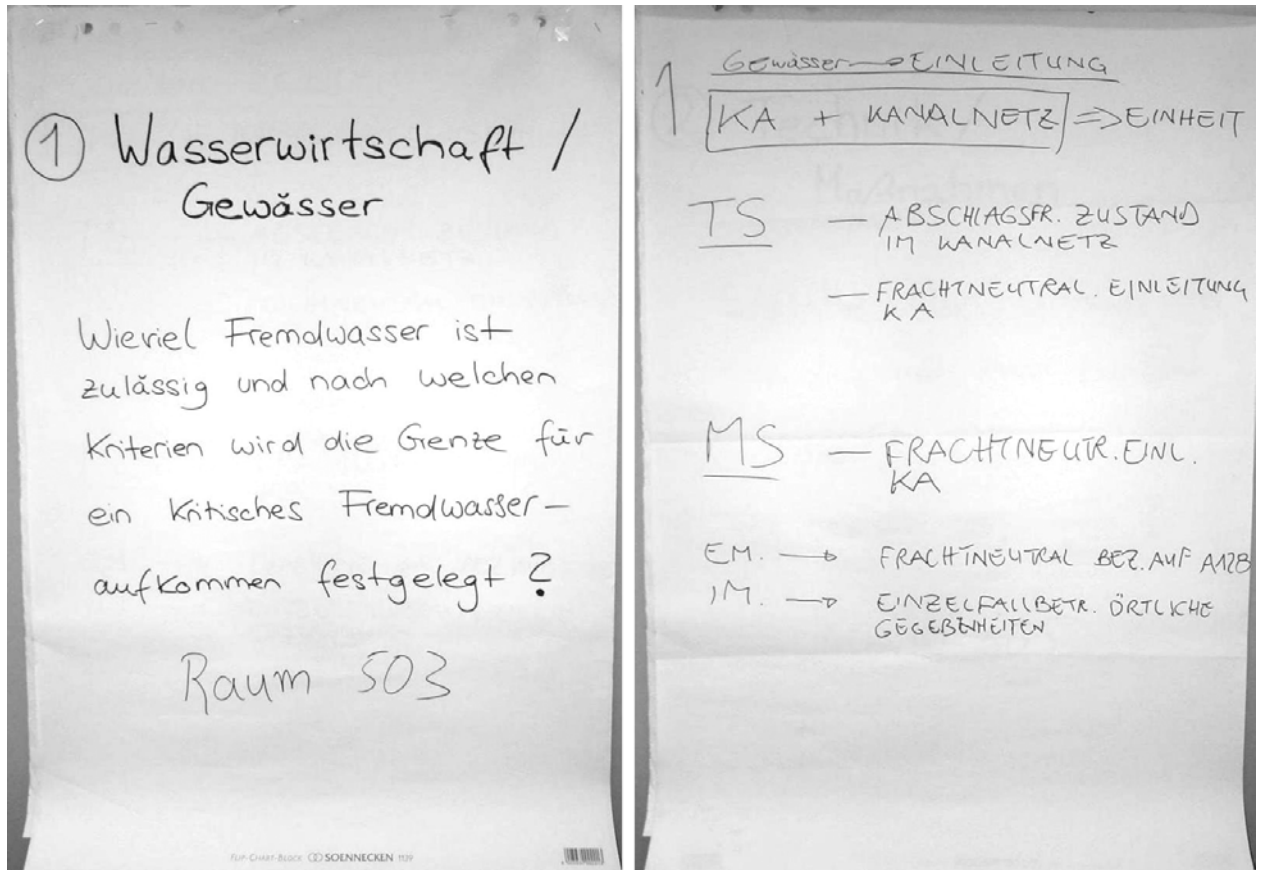 ① Wasserwirtschaft /
Gewässer
Wieviel Fremdwasser ist
zulässig und nach welchen
Kriterien wird die Genze für
ein kritisches Fremdwasser-
aufkommen festgelegt ?
Raum 503
FLIP-CHART-BLOCK SOENNECKEN 1129
1 Gewässer → EINLEITUNG
KA + KANALNETZ ⇒ EINHEIT
TS — ABSCHLAGSFR. ZUSTAND
IM KANALNETZ
— FRACHTNEUTRAL. EINLEITUNG
KA
MS — FRACHTNEUTR. EINL.
KA
EM. → FRACHTNEUTRAL BEZ. AUF A128
IM. → EINZELFALLBETR. ÖRTLICHE
GEGEBENHEITEN